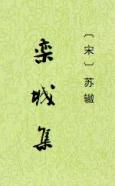 〔宋〕苏辙
栾城集